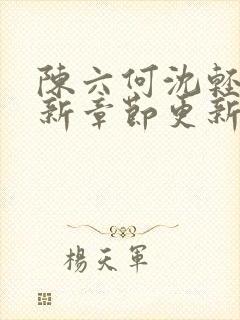 陳六何沈輕
新章節更新
楊天軍